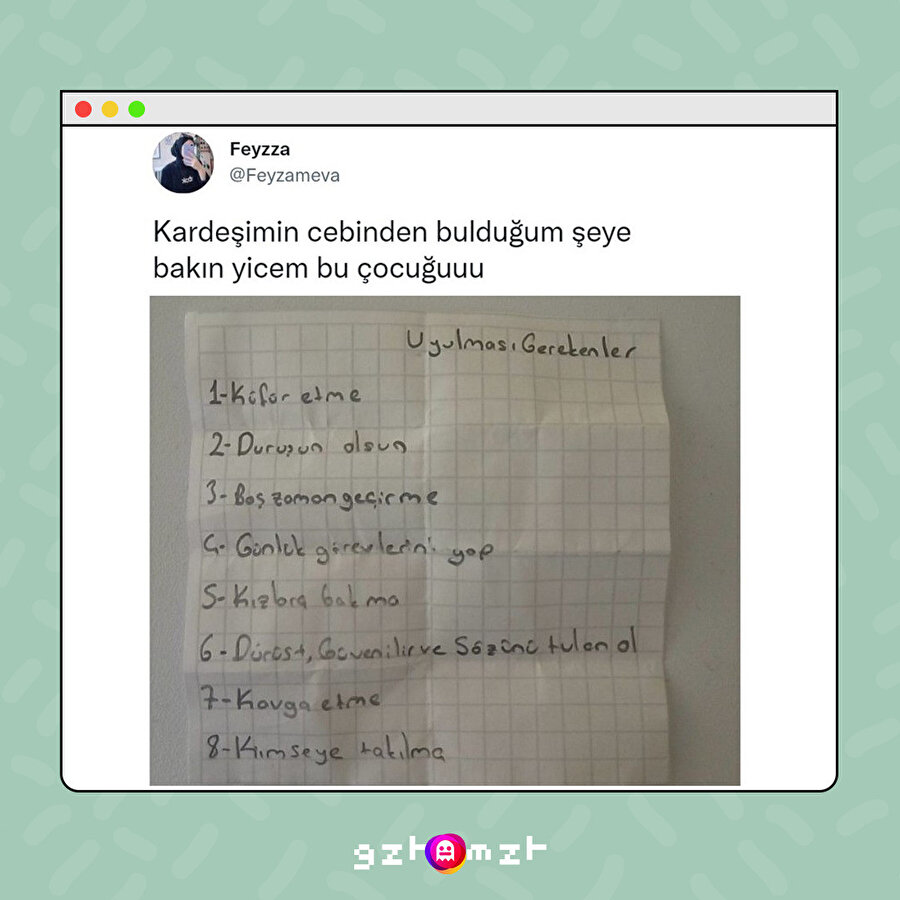 Feyzza
@Feyzameva
Kardeşimin cebinden bulduğum şeye
bakın yicem bu çocuğuuu
Uyulması Gerekenler
1-Küfür etme
2-Duruşun olsun
3-Boş zaman geçirme
4-Günlük görevlerini yap
5-Kızlara bakma
6-Dürüst, Güvenilir ve Sözünü tutan ol
7-Kavga etme
8-Kimseye takılma
gzt mzt